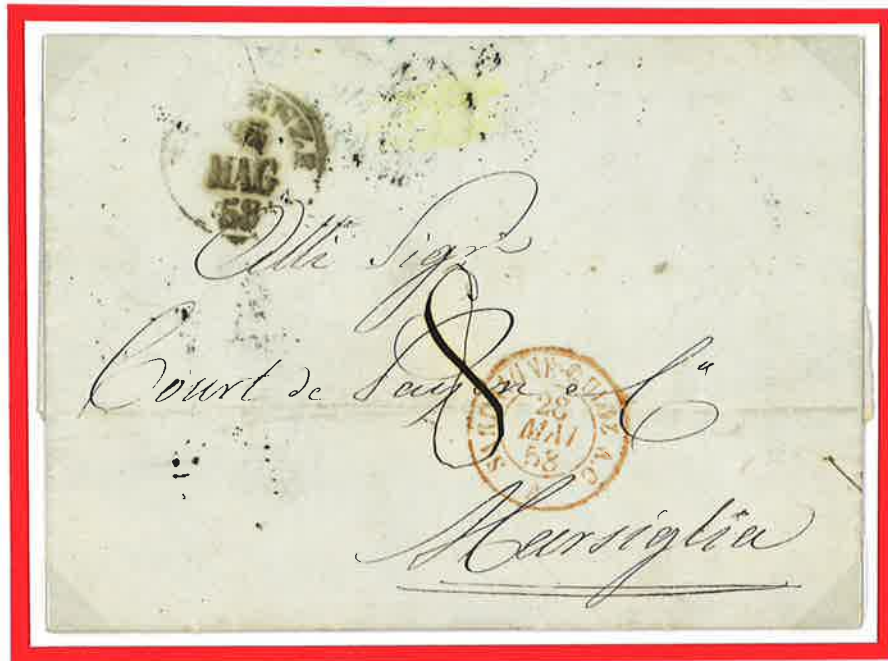 MAG
58
Alli Sigri
8
Court de Payen e Ca
28
MAI
58
A.C
Marsiglia